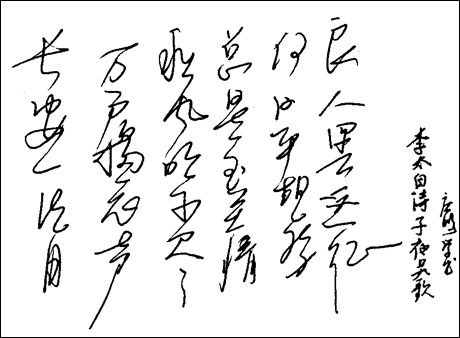 长安一片月
万户捣衣声
秋风吹不尽
总是玉关情
何日平胡虏
良人罢远征
李太白诗子夜吴歌